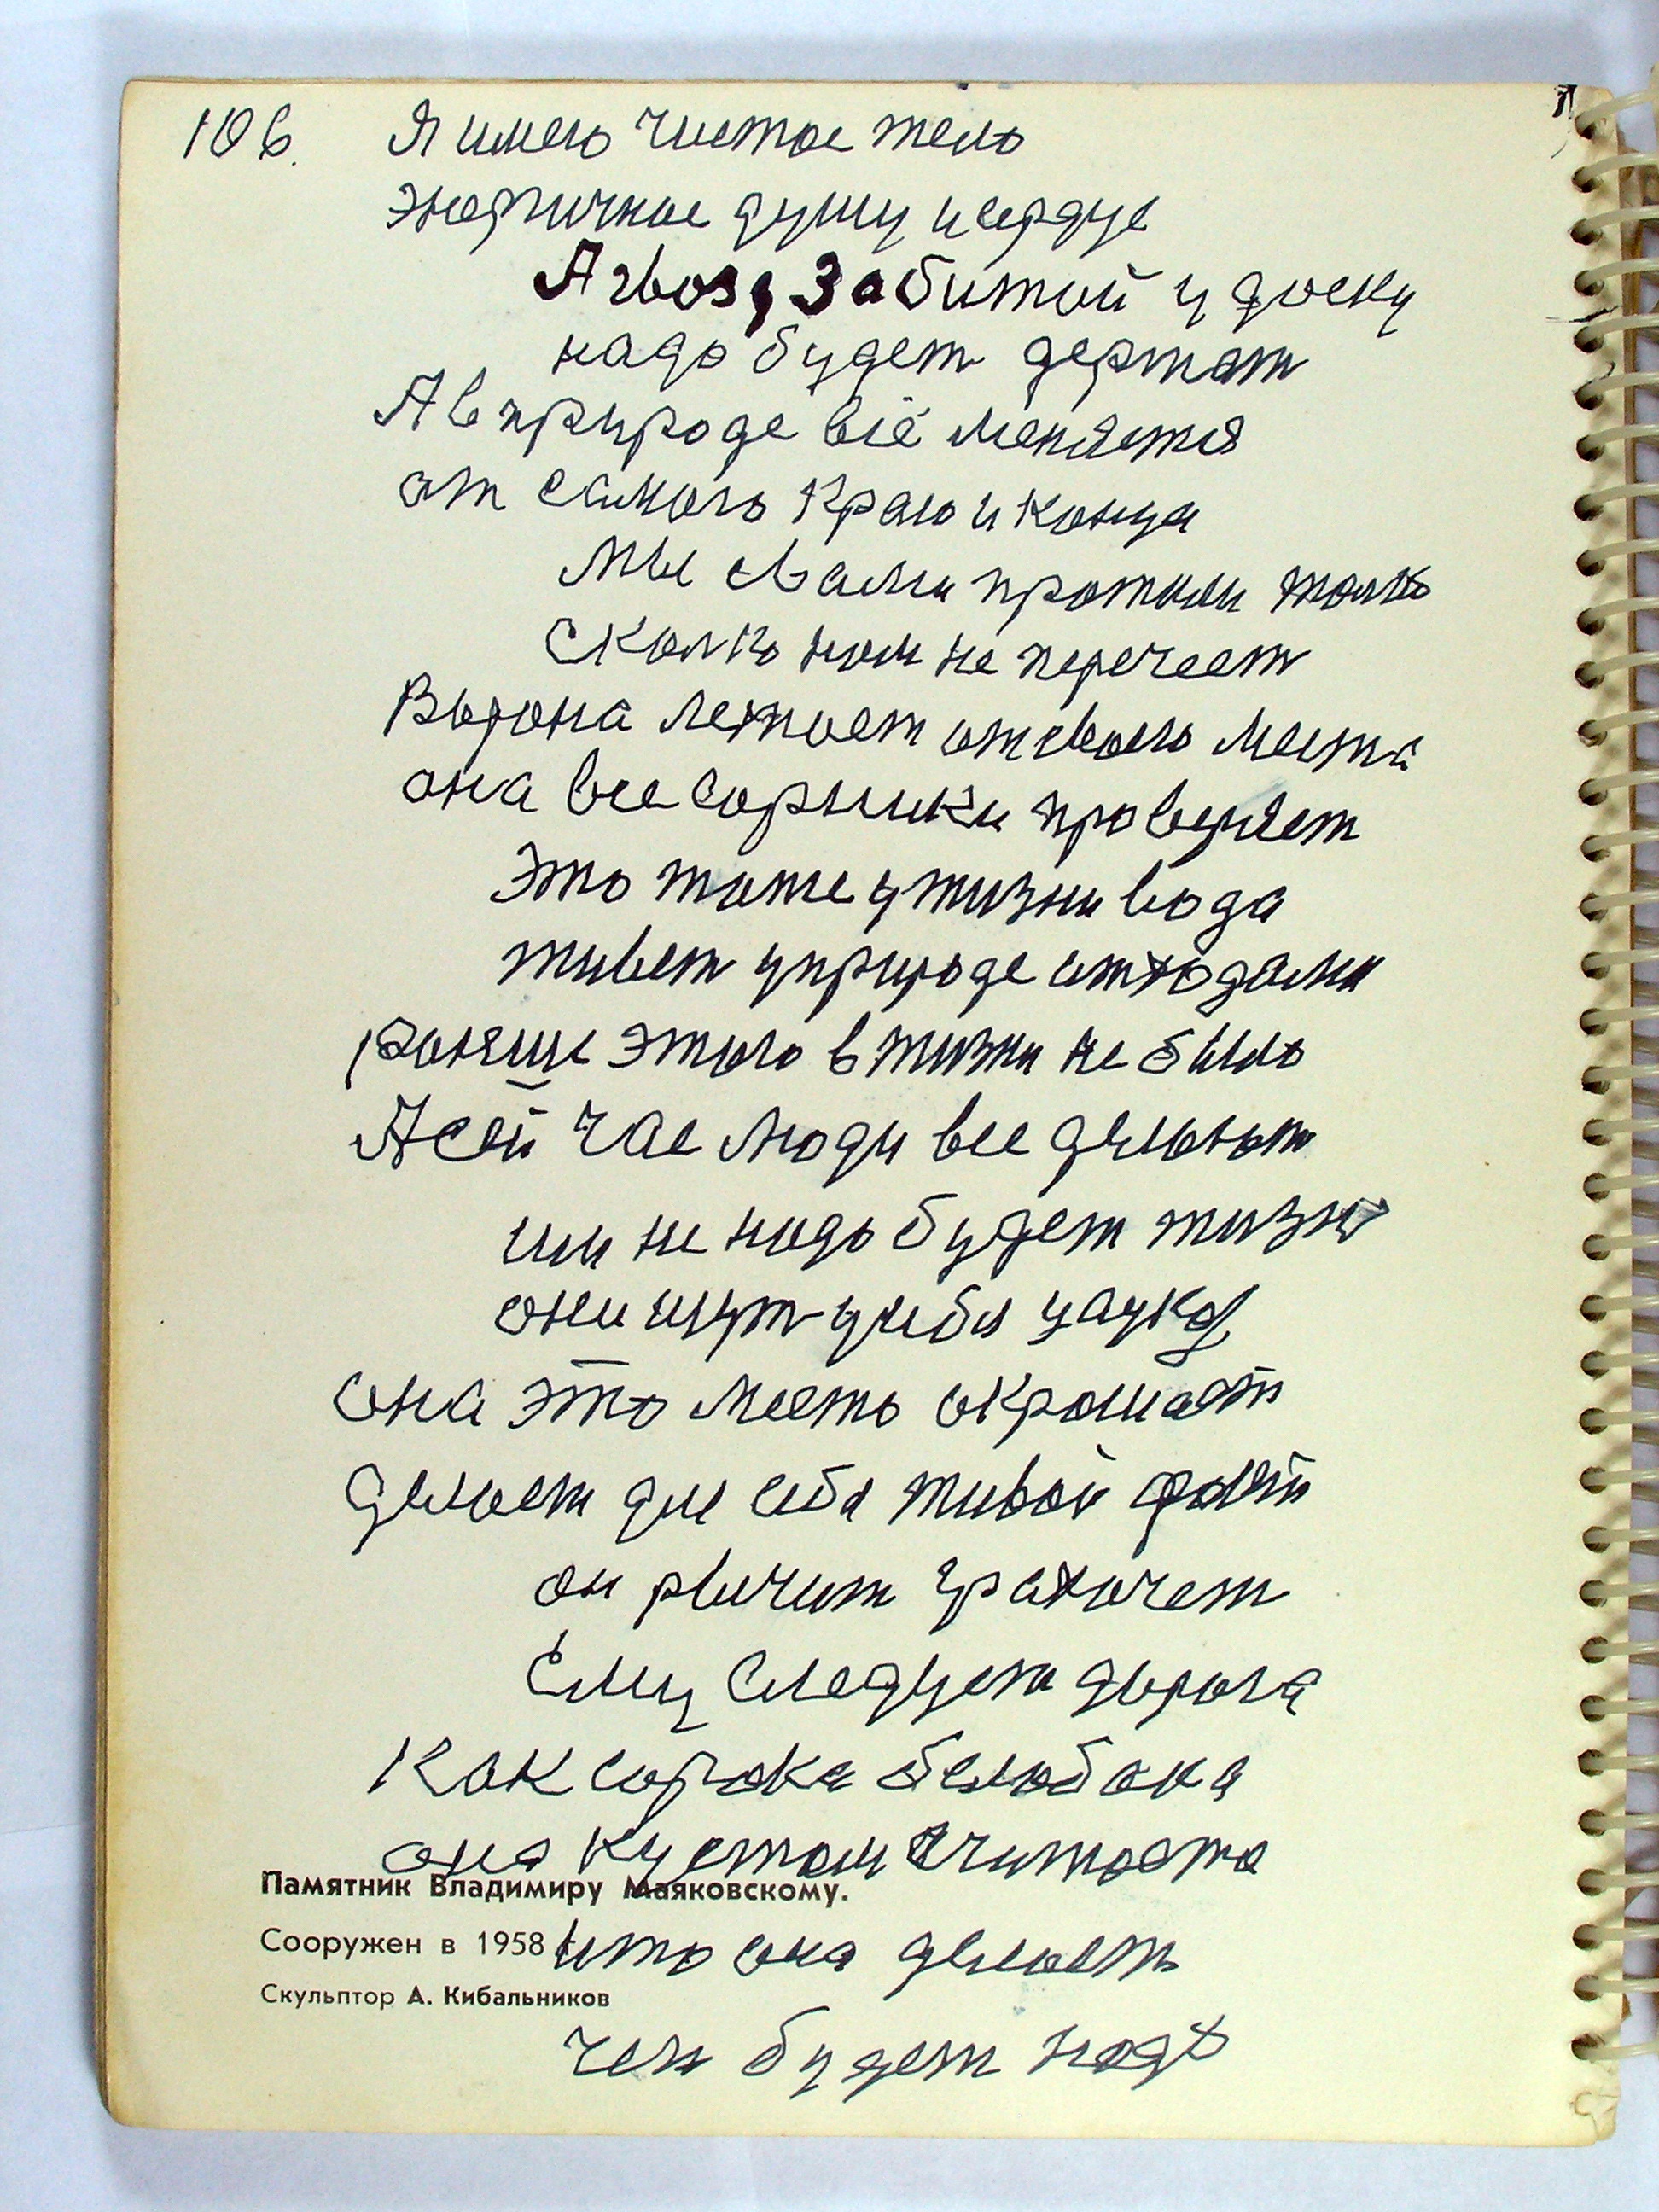 106. Я имею чистое тело
энергичное душу и сердце
А гвозд забитой у доску
надо будет держат
А в природе всё меняется
от самого краю и конца
Мы с вами против толко
сколко нам не перечеет
Ворона летает от своего места
она все сорники проверяет
Это тоже у жизни вода
живет у природе отходами
раняше этого в жизни не было
А сей час люди все делают
им не надо будет жизн
они ищут у себя
она это место окрошает
Делает для себя живой
он рвичит грахочет
Ему следует дорога
Как сорока белобока
она кустом считается
Памятник Владимиру Маяковскому.
Сооружен в 1958
что она делает
Скульптор А. Кибальников
чем будет надо